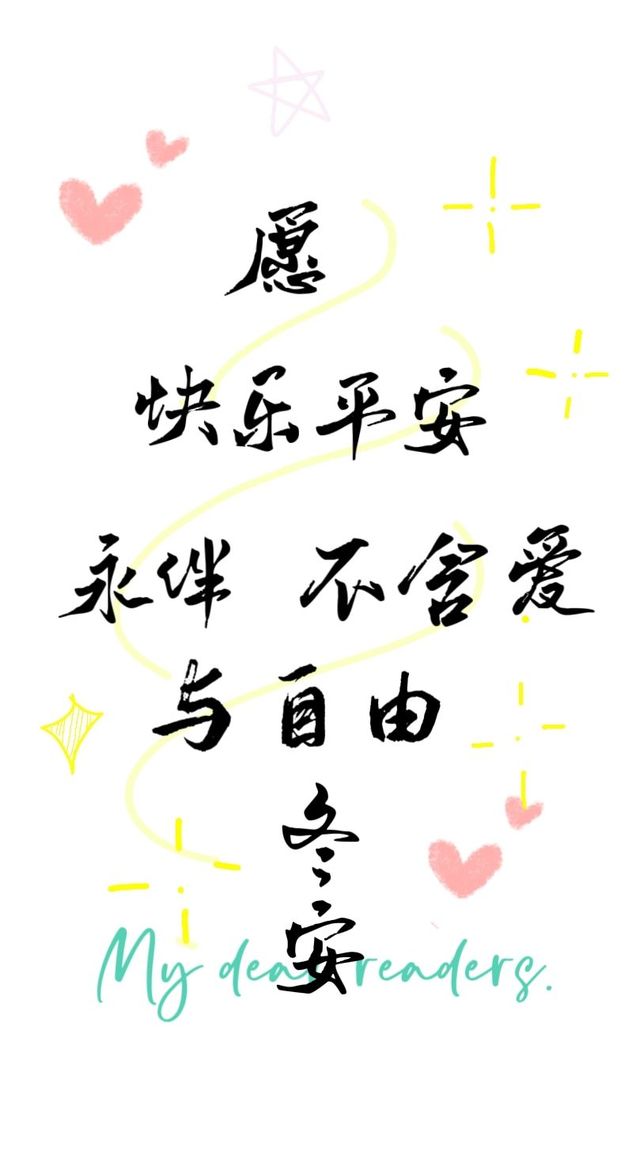 愿
快乐平安
永伴 不含爱
与自由
冬
安
My dear readers.